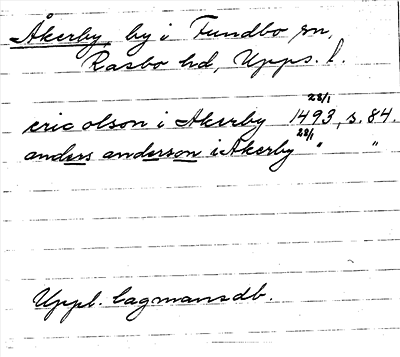 Åkerby, by i Funbo sn,
Rasbo hd, Upps. l.
28/1
eric olson i Akerby 1493, s. 84.
28/1
anders anderson i Akerby " "
Uppl. lagmansdb.